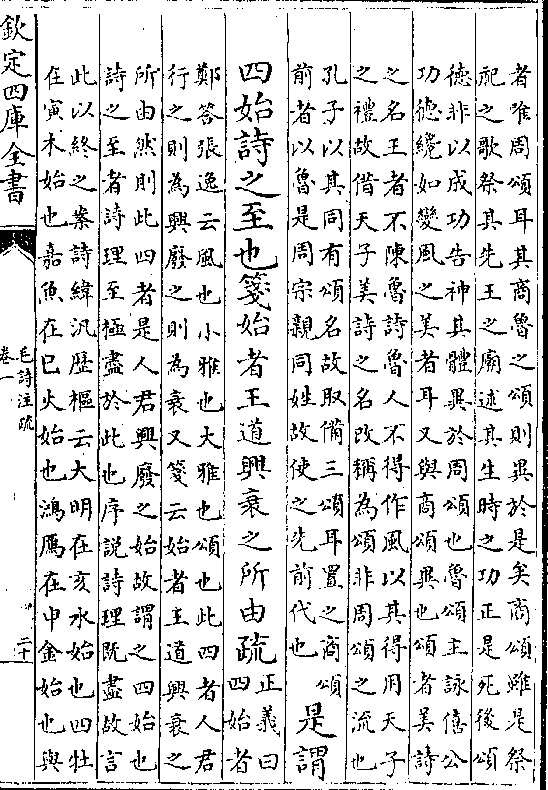 者唯周頌耳其商魯之頌則異於是矣商頌雖是祭
祀之歌祭其先王之廟述其生時之功正是死後頌
徳非以成功告神其體異於周頌也魯頌主詠僖公
功徳纔如變風之美者耳又與商頌異也頌者美詩
之名王者不陳魯詩魯人不得作風以其得用天子
之禮故借天子美詩之名改稱為頌非周頌之流也
孔子以其同有頌名故取備三頌耳置之商頌
前者以魯是周宗親同姓故使之先前代也
是謂
四始詩之至也箋始者王道興衰之所由疏
正義曰
四始者
鄭答張逸云風也小雅也大雅也頌也此四者人君
行之則為興廢之則為衰又箋云始者王道興衰之
所由然則此四者是人君興廢之始故謂之四始也
詩之至者詩理至極盡於此也序説詩理既盡故言
此以終之案詩緯汎歴樞云大明在亥水始也四牡
在寅木始也嘉魚在巳火始也鴻鴈在申金始也與
欽定四庫全書
毛詩注疏
卷一
二十